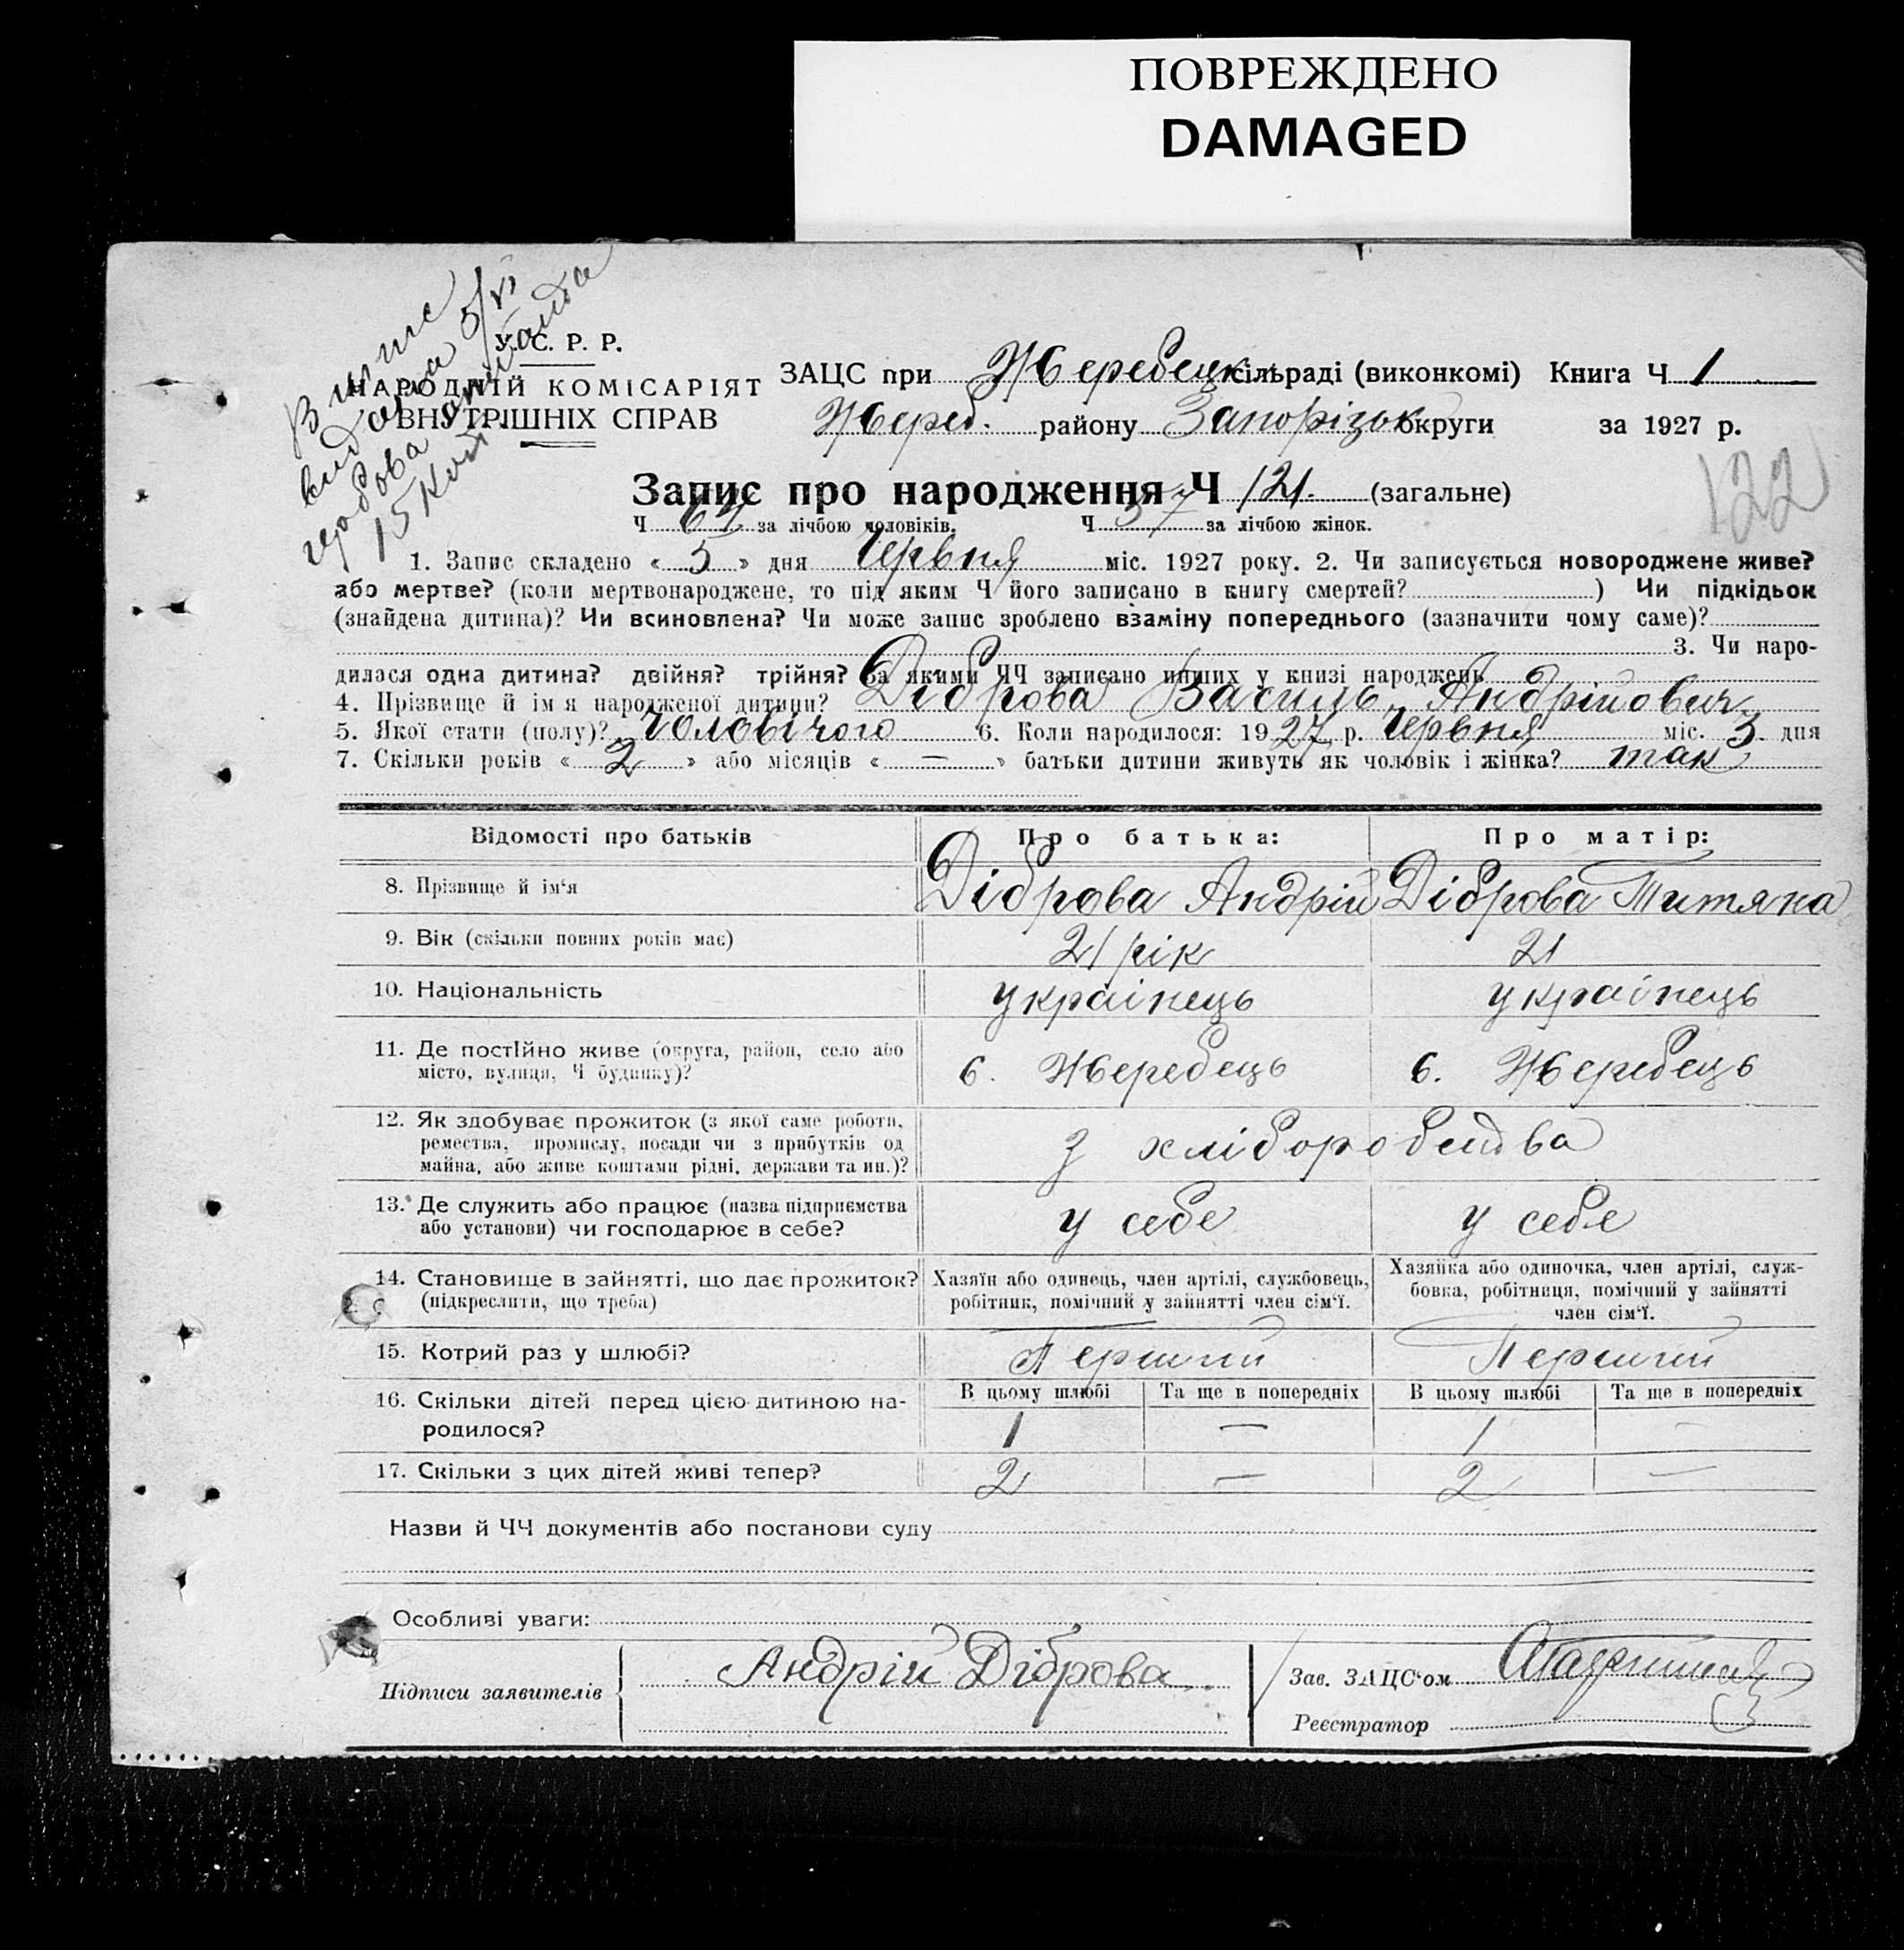 ПОВРЕЖДЕНО
DAMAGED
Випис
видана 5/VI
15 коп
У. С. Р. Р.
НАРОДНІЙ КОМІСАРІЯТ
ВНУТРІШНІХ СПРАВ
ЗАЦС при Жеребецк. сільраді (виконкомі) Книга Ч 1
Жереб. району Запорізьк округи за 1927 р.
Запис про народження Ч 121. (загальне)
122
Ч 64 за лічбою чоловіків. Ч 57 за лічбою жінок.
1. Запис складено « 5 » дня Червня міс. 1927 року. 2. Чи записується новороджене живе?
або мертве? (коли мертвонароджене, то під яким Ч його записано в книгу смертей? ) Чи підкідьок
(знайдена дитина)? Чи всиновлена? Чи може запис зроблено взаміну попереднього (зазначити чому саме)?
3. Чи наро-
дилася одна дитина? двійня? трійня? За якими ЧЧ записано инших у книзі народжень
4. Прізвище й ім я народженої дитини? Діброва Василь Андрійович
5. Якої стати (полу)? чоловічого 6. Коли народилося: 1927 р. Червня міс. 3 дня
7. Скільки років « 2 » або місяців « — » батьки дитини живуть як чоловік і жінка? так
Відомості про батьків Про батька: Про матір:
8. Прізвище й ім‘я Діброва Андрій Діброва Титяна
9. Вік (скільки повних років має) 21 рік 21
10. Національність українець українець
11. Де постІйно живе (округа, район, село або
місто, вулиця, Ч будинку)? с. Жеребець с. Жеребець
12. Як здобуває прожиток (з якої саме роботи,
ремества, промислу, посади чи з прибутків од
майна, або живе коштами рідні, держави та ин.)? з хліборобства
13. Де служить або працює (назва підприємства
або установи) чи господарює в себе? у себе у себе
14. Становище в зайнятті, що дає прожиток?
(підкреслити, що треба)
Хазяїн або одинець, член артілі, службовець,
робітник, помічний у зайнятті член сім‘ї.
Хазяйка або одиночка, член артілі, служ-
бовка, робітниця, помічний у зайнятті
член сім‘ї.
15. Котрий раз у шлюбі? Перший Перший
16. Скільки дітей перед цією дитиною на-
родилося?
В цьому шлюбі Та ще в попередніх В цьому шлюбі Та ще в попередніх
1 — 1 —
17. Скільки з цих дітей живі тепер? 2 — 2 —
Назви й ЧЧ документів або постанови суду
Особливі уваги:
Підписи заявителів Андрій Діброва
Зав. ЗАЦС‘ом
Реєстратор